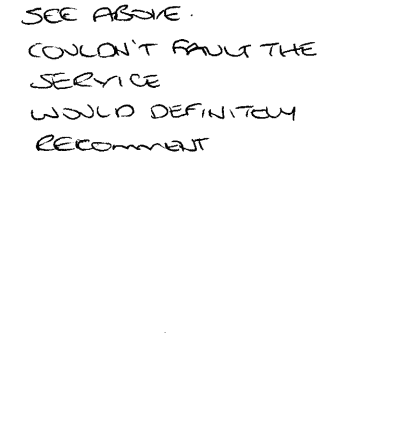 SEE ABOVE.
COULDN'T FAULT THE
SERVICE
WOULD DEFINITELY
RECOMMENT